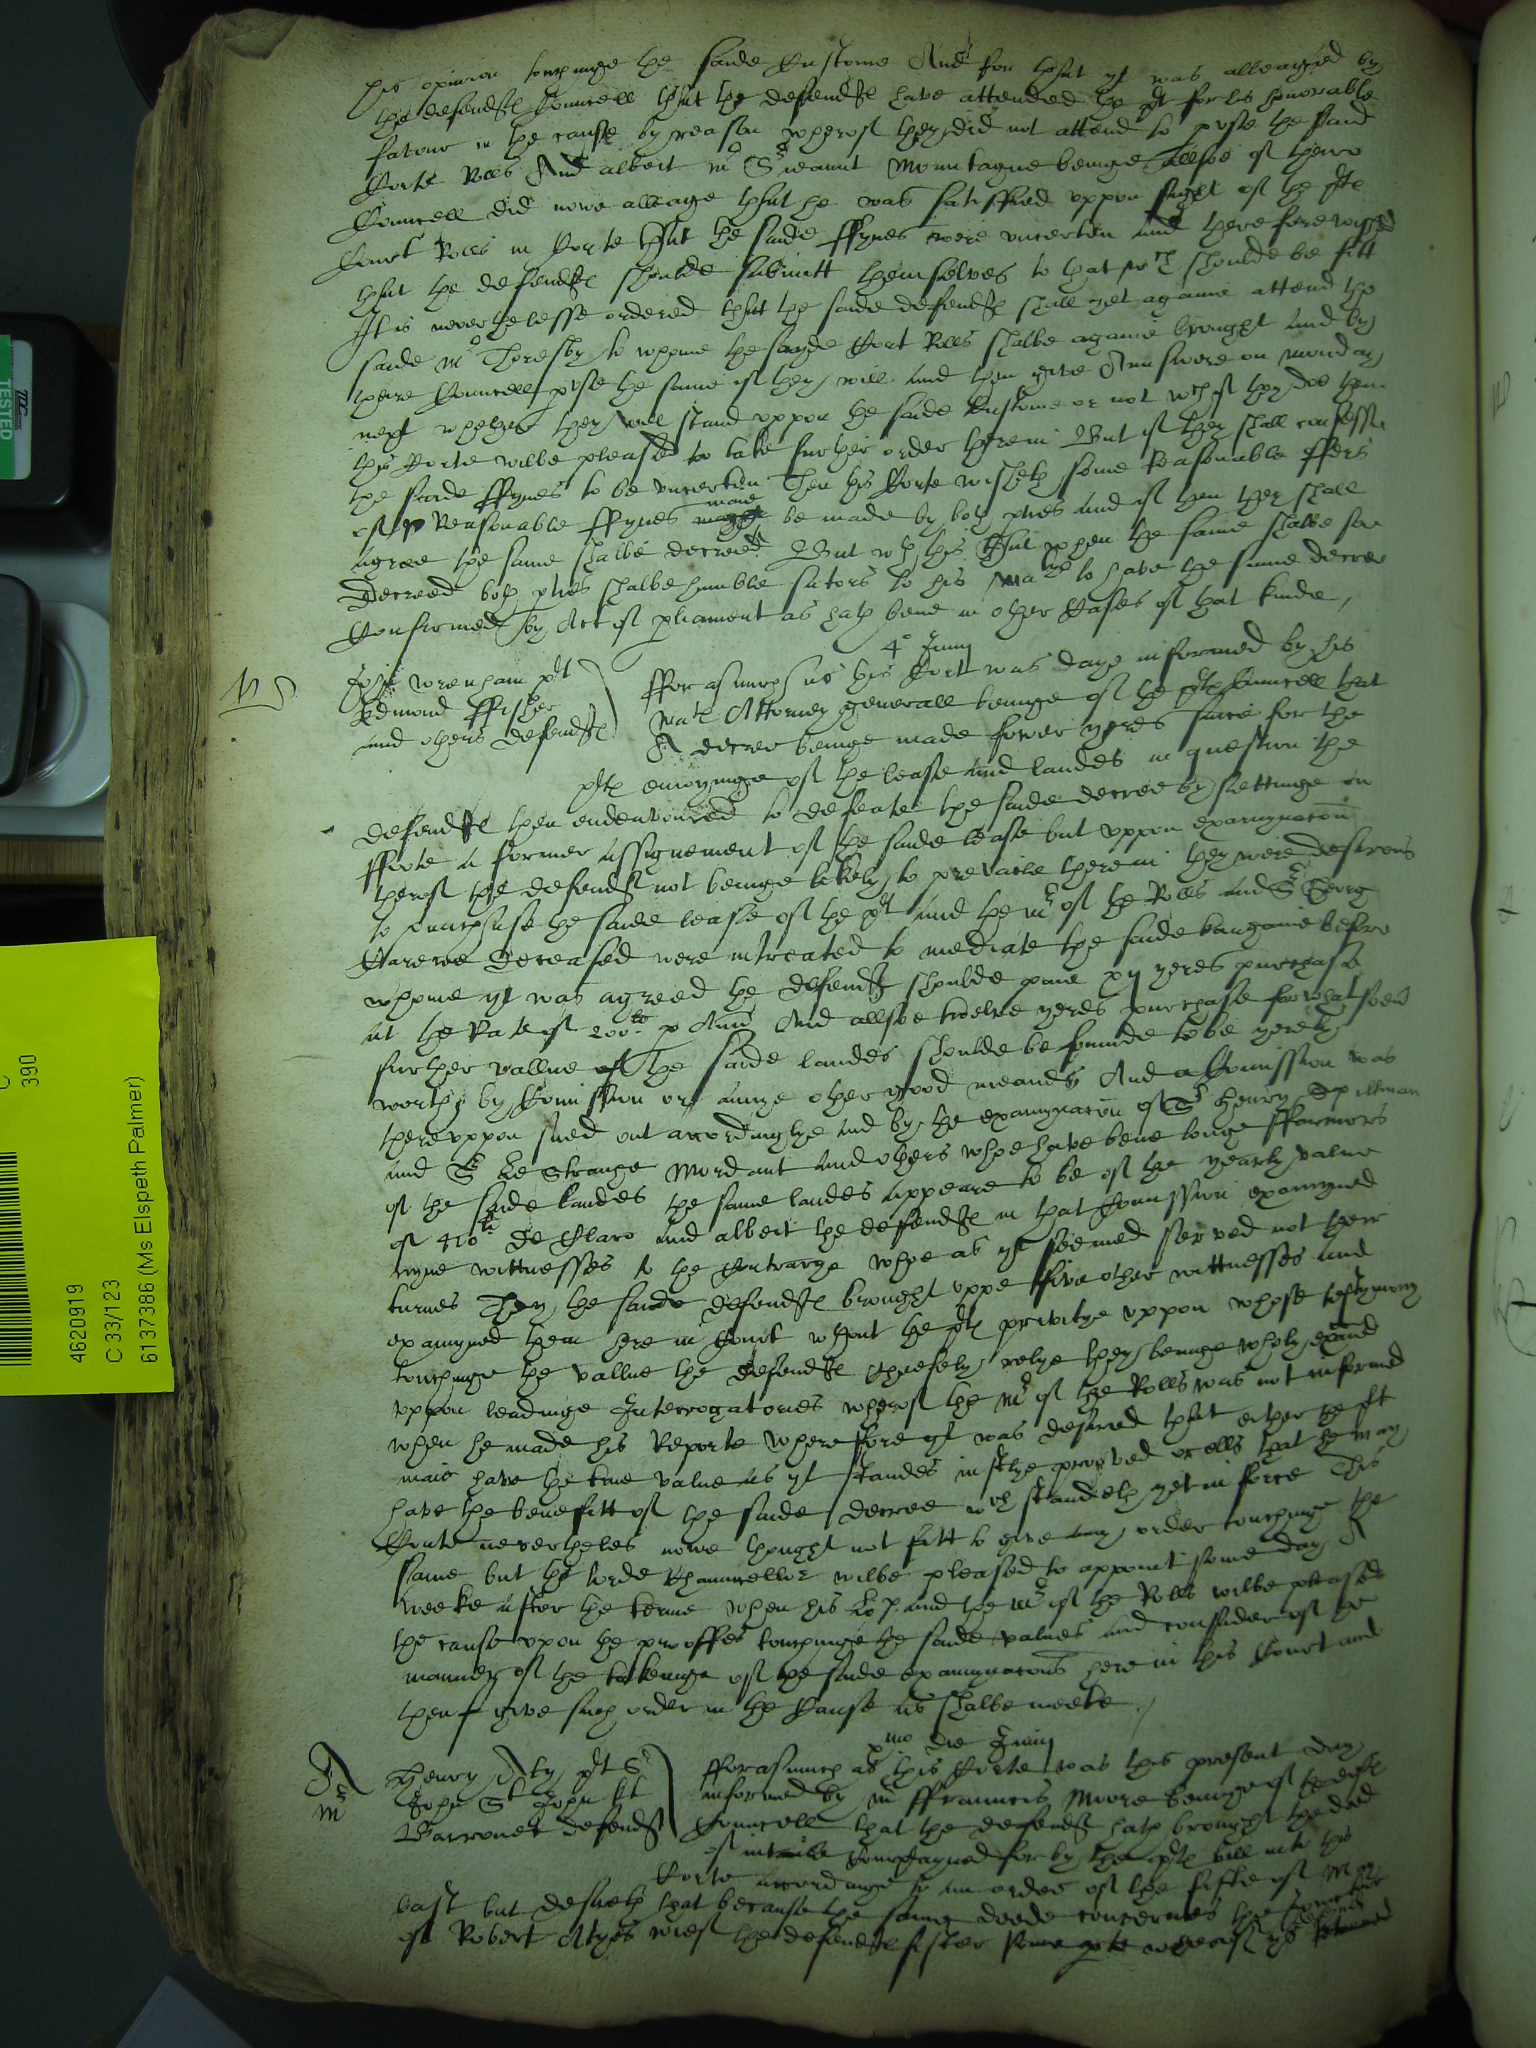 his opinion touchinge the saide Custome And for that yt was alleaged by
the defendtes Councell that the defendtes have attended the plt for his honorable
favour in the cause by reason wherof they did not attend to pvse the said
Corte Rolls And albeit mr Sr ieaunt Mountague beinge allsoe of theire
Councell did nowe alleage that he was satisffied vppon sight of the pltes
Court Rolls in Corte that the saide ffynes were vncerten and therefore wisshed
that the defendtes shoulde submitt themselves to that wch shoulde be fitt
It is neverthelesse ordered that the saide defendtes shall yet againe attend the
saide mr Thoresby to whome the sayde Cort Rolls shalbe againe brought and by
theire Councell pvse the same if they will and then give Answere on monday
next whether they will stand vppon the saide Custome or not wch if they doe then
this Corte wilbe pleased to take further order therein But if they shall confesse
the saide ffynes to be vncerten Then this Corte wisheth some reasonable offers
of reasonable ffynes maie be made by both pties and if then they shall
agree the same shalbe decreed But wth this that when the same shalbe soe
Decreed both pties shalbe humble sutors to his Matie to have the same decree
Confirmed by Act of pliament as hath bene in other Cases of that kinde /
4o Junij
John Wrenham plt
Edmond ffisher
and others defendtes
fforasmuch as this Cort was daye informed by his
Mats Attorney generall beinge of the pltes Councell that
A decree beinge made fower yeres since for the
pltes enioyinge of the lease and landes in question the
defendtes then endevoured to defeate the saide decree by settinge on
ffoote a former assignement of the saide lease but vppon examynacon
therof the defendtes not beinge likely to prevaile therein they were desirous
to purchase the saide lease of the plt and the mr of the Rolls and Sr Georg
Carewe deceased were intreated to mediate the saide bargaine before
whome yt was agreed the defendt shoulde paie xij yeres purchase
at the rate of 200li p Annu And allsoe twelve yeres purchase for what soeu
further vallue of the saide landes shoulde be founde to be yerely
worth by Comission or anye other good meanes And a Comission was
therevppon sued out accordinglye and by the examynacon of Sr Henry Spillman
and Sr Le Strange Mordant and others whoe have bene longe ffarmors
of the saide landes the same landes appeare to be of the yearly value
of 410li De Claro and albeit the defendtes in that Comission examyned
nyne wittnesses to the Contrarye whoe as yt seemed served not their
turnes They the saide defendtes brought vppe five other wittnesses and
examyned them here in Court wthout the pltes privitye vppon whose testymony
touchinge the vallue the defendtes cheefely relye they beinge wholy exaied
vppon leadinge Interrogatories wherof the mr of the Rolls was not informed
when he made his Reporte wherefore yt was desired that either the plt
maie have the true value as yt standes iustlye proved or ells that he may
have the benefitt of the saide decree wch standeth yet in force This
Corte neverthelesse nowe thought not fitt to give any order touchinge the
same but the lorde Chauncellor wilbe pleased to appoint some day A
weeke after the terme when his Lop and the mr of the Rolls wilbe pleased
the cause vpon the prooffes touchinge the saide values and consider of the
manner of the takeinge of the saide examynacons here in this Court and
then give such order in the Cause as shalbe meete /
pmo die Junij
A
mr
Henry Aty plt Sr
John St John kt
Barronet defendt
fforasmuch as this Corte was this present day
informed by mr ffrauncis Moore beinge of the deftes
Councell that the defendt hath brought the deed
of intaile Complayned for by the pltes bill into this
Corte accordinge to an order of the fifte of May
last but desireth that because the same deede concernes the
of Robert Atyes wief the defendtes sister
TESTED
C
390
46209919
C 33/123
6137386 (Ms Elspeth Palmer)